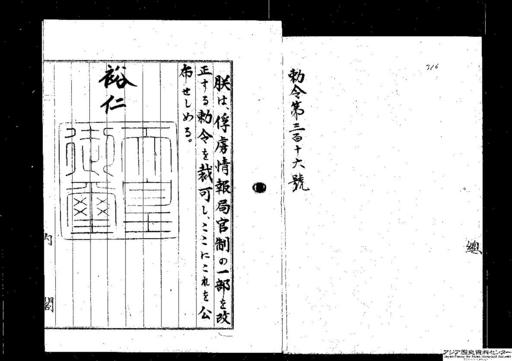 316
勅令第三百十六號
總
朕は、俘虜情報局官制の一部を改
正する勅令を裁可し、ここにこれを公
布せしめる。
裕仁
天皇御璽
内閣
アジア歴史資料センター